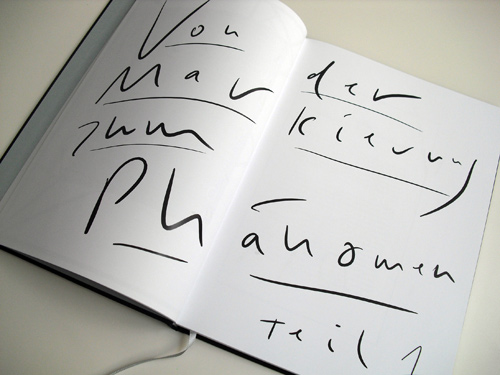 Von der
Markierung
zum
Phänomen
teil 1